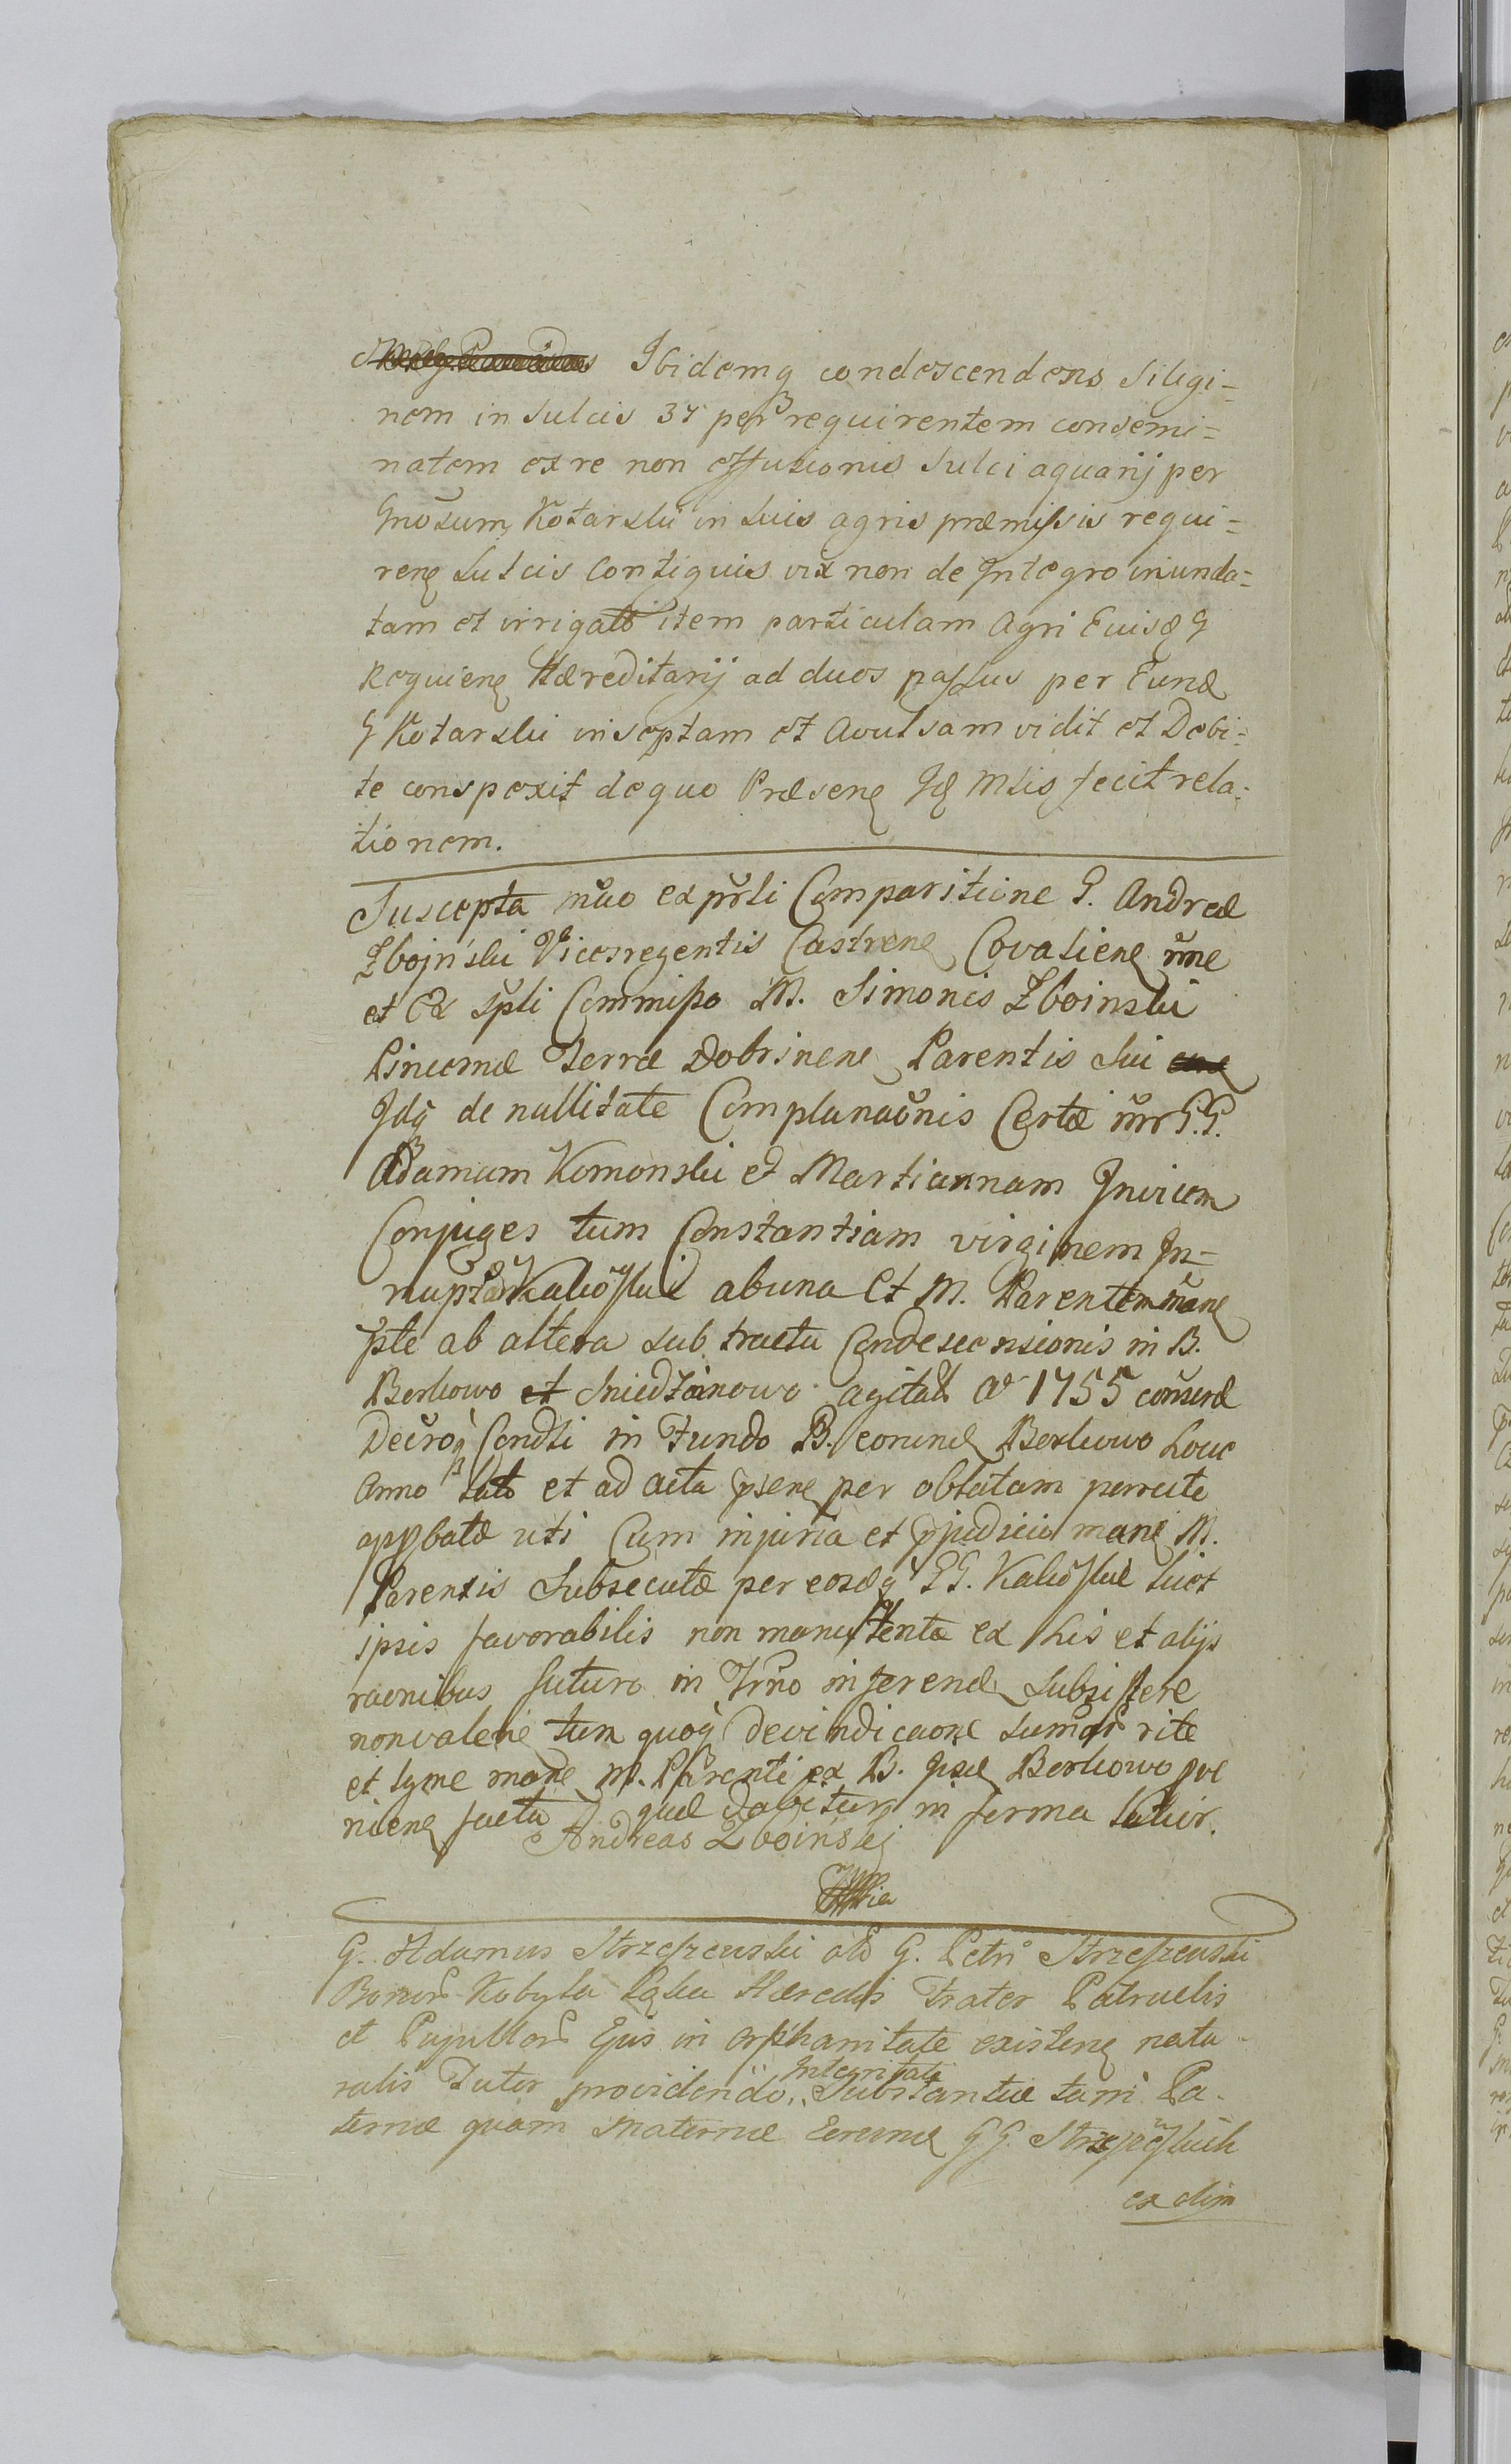 Ibidemq condescendens Siligi=
nem in Sulcis 37 per requirentem consemi=
natem ex re non effusionis Sulci aquarij per
Gnosum Kotarski in Suis agris præmissis requi=
ren Sulcis Contiguis vix non de Integro inunda=
tam et irrigatt item particulam Agri Euisd G
Requiren Hæreditarij ad duos passus per Eund
G Kotarski inseptam et Avulsam vidit et Debi=
te conspexit de quo Præsen Id Mtis fecit rela=
tionem.
Suscepta mãto ex prsli Comparitione G. Andreæ
Zboinski Vicesregentis Castren Covalien
et Ex spli Commisso M. Simonis Zboinski
Pincernæ Terræ Dobrinen Parentis Sui
Idq de nullitate Complanaõnis Certæ inr G.G.
Adamum Komonski et Martiannam Invicem
Conjuges tum Constantiam virginem In=
nuptã Kaliõskie ab una Et M. Parentem mane
pte ab altera sub tractu Condescensionis in B.
Borkowo et Sniedzanowo agitatt Aº 1755 consud
Decroq Condti in Fundo B. eorund Borkowo Louc
Anno latt et ad acta psen per oblatam perrecte
appbatæ uti Cum injuria et pjudicio mane M.
Parentis Subsecutæ per eosdq GG. Kaliõskie licet
ipsis favorabilis non manutentæ ex his et alijs
raõnibus futuro in Trno inferend Subsistere
non valen tum quoq Devindicaone Sumar rite
et lgme mane M. Parenti ex B. ipsis Borkowo pve
nien facta quæ dabitur in forma latior.
Andreas Zboinski
G. Adamus Strzeszewski olo G. Petri Strzeszewski
Bonor Kobyla Łąka Hæredis Frater Patruelis
et Pupillor Ejus in orphanitate existen natu
ralis Tutor providendo Integritati Substantiæ tam Pa-
ternæ quam Maternæ Eorund GG. Strzeszewskich
ex dim